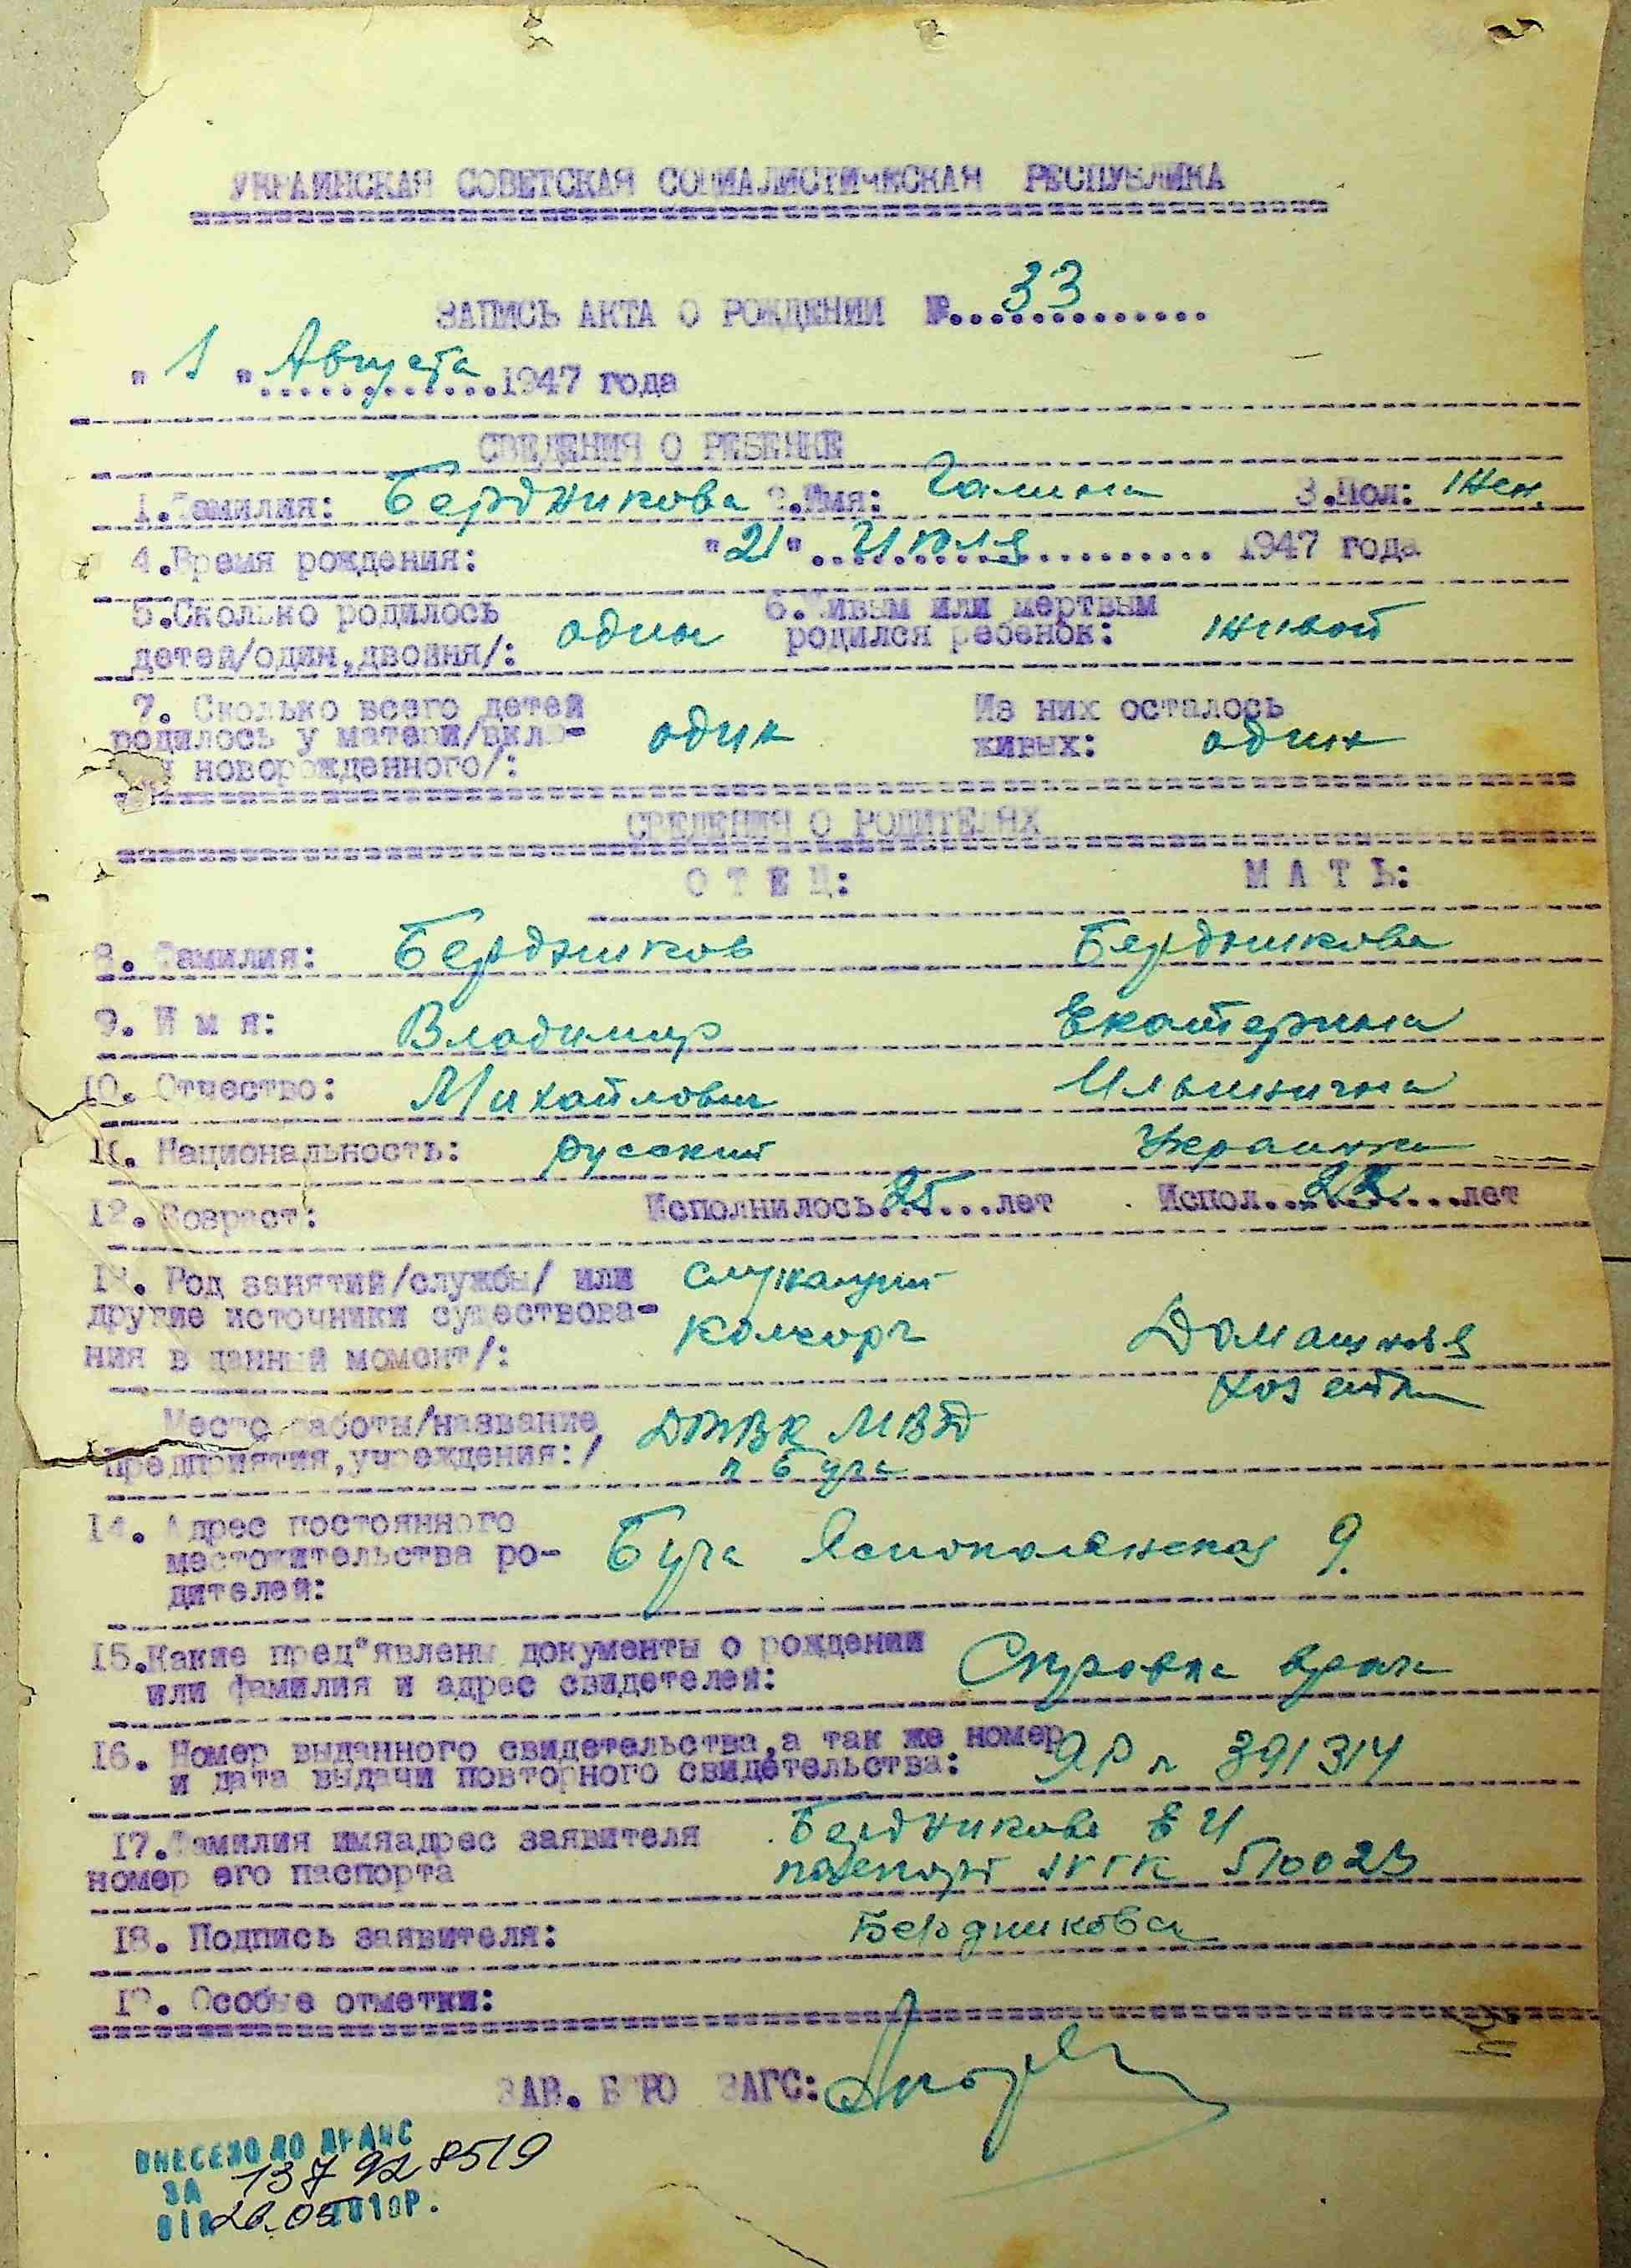 УКРАИНСКАЯ СОВЕТСКАЯ СОЦИАЛИСТИЧЕСКАЯ РЕСПУБЛИКА
ЗАПИСЬ АКТА О РОЖДЕНИИ №. 33
" 1 " Августа 1947 года
СВЕДЕНИЯ О РЕБЕНКЕ
1.Фамилия: Бердникова 2.Имя: Галина 3.Пол: Жен.
4.Время рождения: "21" Июля 1947 года
5.Сколько родилось детей/один,двойня/: один 6.Живым или мертвым родился ребенок: живой
7. Сколько всего детей родилось у матери/вклю-
новорожденного/: один Из них осталось живых: один
СВЕДЕНИЯ О РОДИТЕЛЯХ
ОТЕЦ: МАТЬ:
8. Фамилия: Бердников Бердникова
9. Имя: Владимир Екатерина
10. Отчество: Михайлович Ильинична
11. Национальность: русский Украинка
12. Возраст: Исполнилось 25 лет Испол. лет
13. Род занятий/службы/ или служащий
другие источники существова-
ния в данный момент/: Домашняя
хозяйка
Место работы/название МВД
предприятия,учреждения:/ п Буча
14. Адрес постоянного
местожительства ро- Буча Яснополянская 9.
дителей:
15.Какие пред"явлены документы о рождении
или фамилия и адрес свидетелей: Справка врача
16. Номер выданного свидетельства,а так же номер
и дата выдачи повторного свидетельства: ЯР № 391314
17.Фамилия имяадрес заявителя Бердникова Е И
номер его паспорта паспорт 510023
18. Подпись заявителя: Бердникова
19. Особые отметки:
ЗАВ. БЮРО ЗАГС:
ВНЕСЕНО ДО ДРАЦС
ЗА 137928519
ВІД 26.05 2010Р.